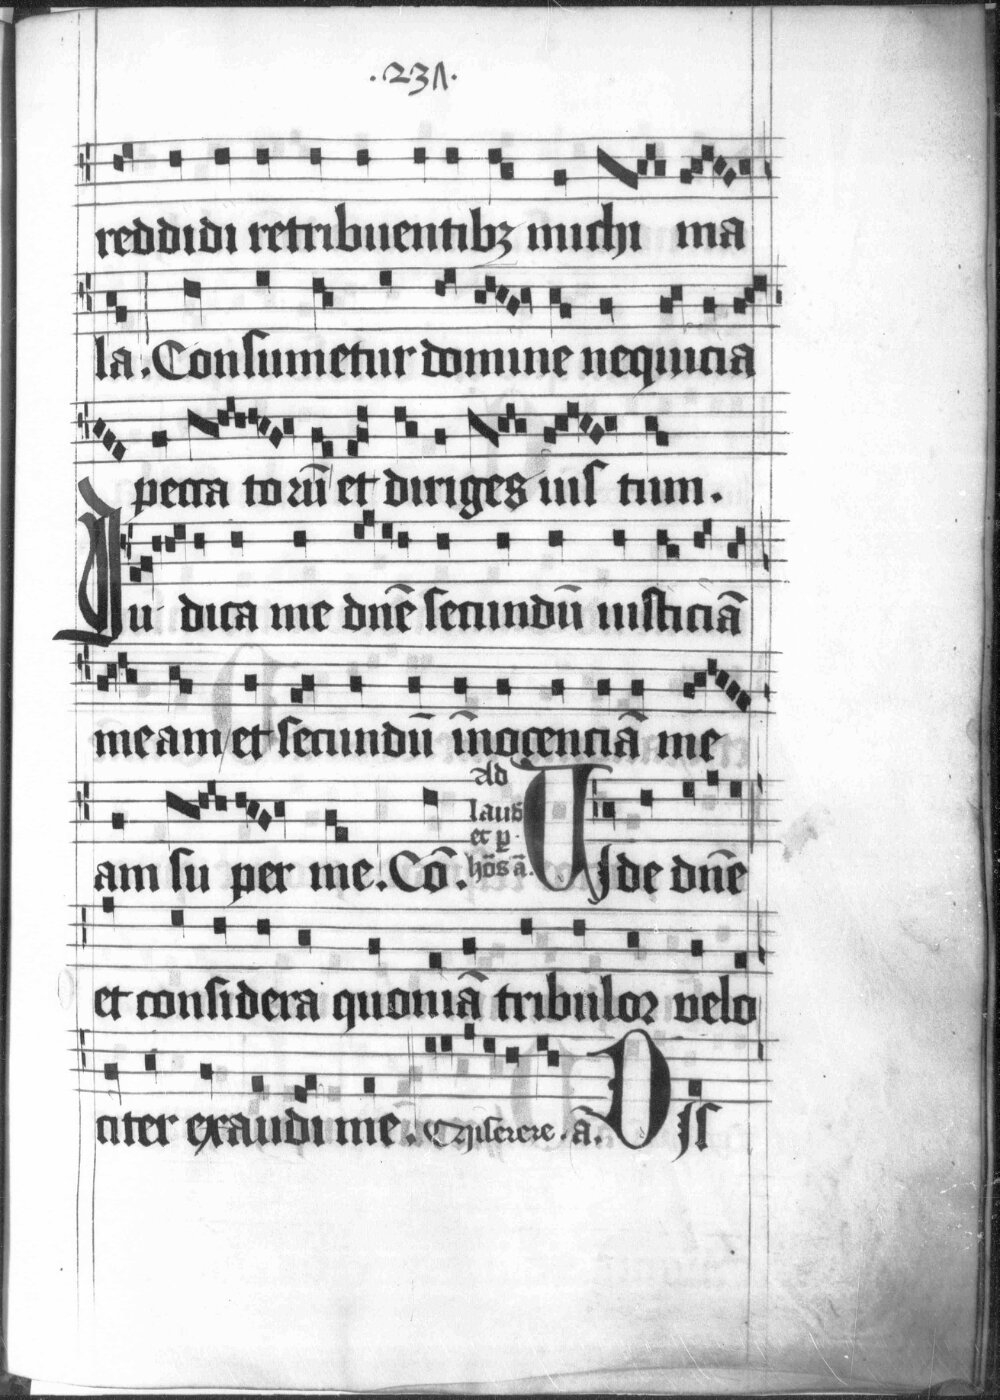 .231.
reddidi retribuentibꝫ michi ma
la. Consumetur domine nequicia
pecca toꝝū et diriges ius tum.
Ju dica me dn̄e secundū iusticiā
meam et secundū īnocenciā me
am su per me. Cō. Ad laud et ꝑ hōs ā. Vide dn̄e
et considera quoniā tribulor velo
citer exaudi me. Miserere. ā. Diss